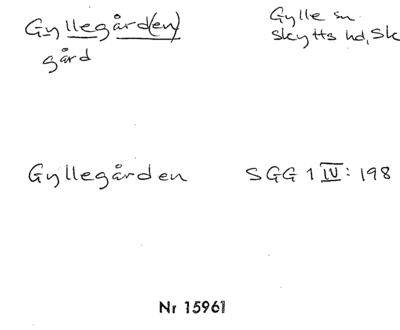 Gyllegård(en)
gård
Gylle sn
Skytts hd, Sk
Gyllegården SGG 1 IV: 198
Nr 15961